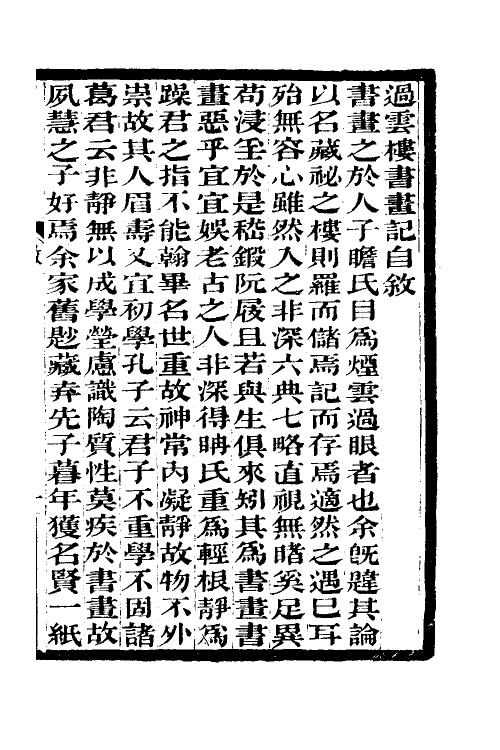 過雲樓書畫記自敘
書畫之於人子瞻氏目爲煙雲過眼者也余旣韙其論
以名藏祕之樓則羅而儲焉記而存焉適然之遇巳耳
殆無容心雖然人之非深六典七略直視無睹奚足異
苟浸婬於是嵇鍛阮屐且若與生俱來矧其爲書畫書
畫惡乎宜宜娛老古之人非深得聃氏重爲輕根靜爲
躁君之指不能翰畢名世重故神常內凝靜故物不外
祟故其人眉壽又宜初學孔子云君子不重學不固諸
葛君云非靜無以成學瑩慮識陶質性莫疾於書畫故
夙慧之子好焉余家舊尟藏弆先子暮年獲名賢一紙